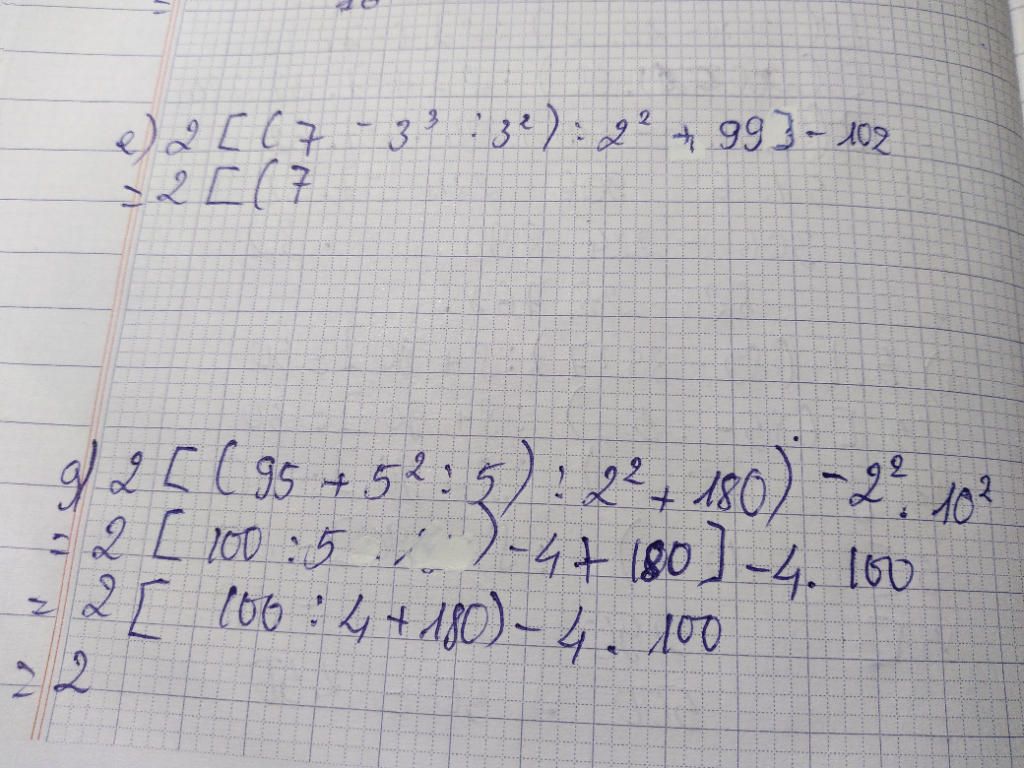 e) 2 [ ( 7 - 3³ : 3² ) : 2² + 99 ] - 102
= 2 [ ( 7
g) 2 [ ( 95 + 5² : 5 ) : 2² + 180 ) - 2² . 10²
= 2 [ 100 : 5 ) - 4 + 180 ] - 4 . 100
= 2 [ 100 : 4 + 180 ) - 4 . 100
= 2